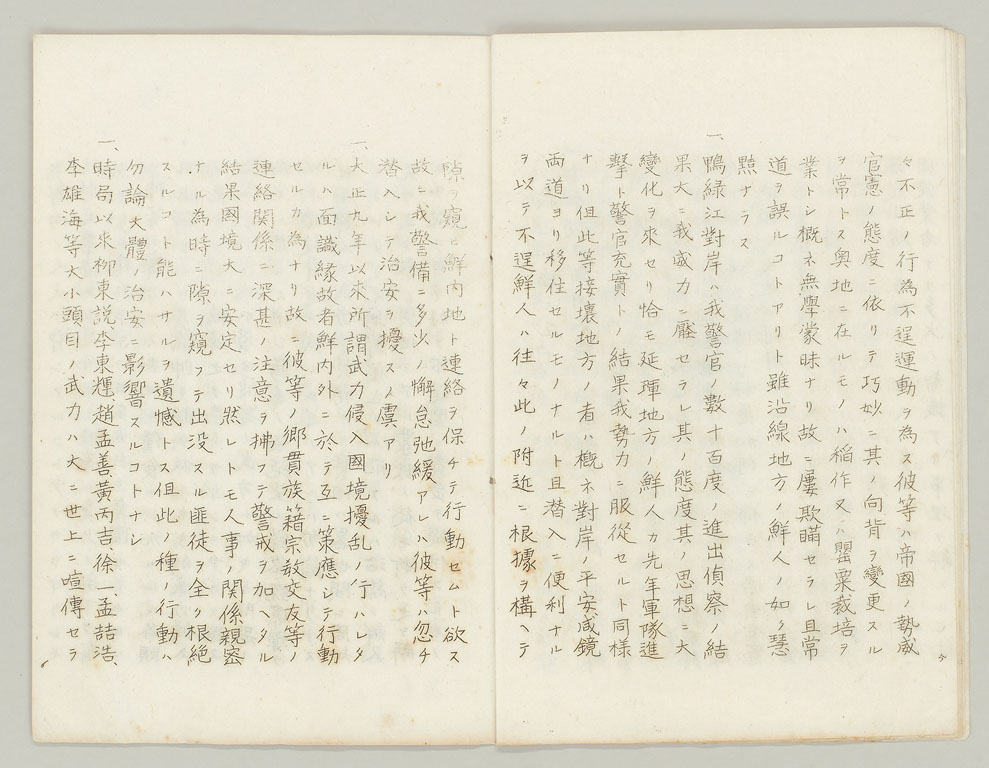 々不正ノ行為不逞運動ヲ為ス彼等ハ帝國ノ勢威
官憲ノ態度ニ依リテ巧妙ニ其ノ向背ヲ變更スル
ヲ常トス奥地ニ在ルモノハ稲作又ハ罌粟栽培ヲ
業トシ概ネ無學蒙昧ナリ故ニ屢欺瞞セラレ且常
道ヲ誤ルコトアリト雖沿線地方ノ鮮人ノ如ク慧
黠ナラス
一、鴨緑江對岸ハ我警官ノ數十百度ノ進出偵察ノ結
果大ニ我威力ニ壓セラレ其ノ態度其ノ思想ニ大
變化ヲ來セリ恰モ延琿地方ノ鮮人カ先年軍隊進
撃ト警官充實トノ結果我勢力ニ服從セルト同様
ナリ但此等接壌地方ノ者ハ概ネ對岸ノ平安咸鏡
両道ヨリ移住セルモノナルト且潜入ニ便利ナル
ヲ以テ不逞鮮人ハ往々此ノ附近ニ根據ヲ構ヘテ
隙ヲ窺ヒ鮮内地ト連絡ヲ保チテ行動セムト欲ス
故ニ我警備ニ多少ノ懈怠弛緩アレハ彼等ハ忽チ
潜入シテ治安ヲ擾スノ虞アリ
一、大正九年以来所謂武力侵入國境擾乱ノ行ハレタ
ルハ面識緣故者鮮内外ニ於テ互ニ策應シテ行動
セルカ為ナリ故ニ彼等ノ郷貫族籍宗敎交友等ノ
連絡関係ニ深甚ノ注意ヲ拂フテ警戒ヲ加ヘタル
結果國境大ニ安定セリ然レトモ人事ノ関係親密
ナル為時ニ隙ヲ窺フテ出没スル匪徒ヲ全ク根絶
スルコト能ハサルヲ遺憾トス但此ノ種ノ行動ハ
勿論大體ノ治安ニ影響スルコトナシ
一、時局以来柳東説、李東輝、趙孟善、黃丙吉、徐一、孟喆浩、
李雄海等大小頭目ノ武力ハ大ニ世上ニ喧傳セラ